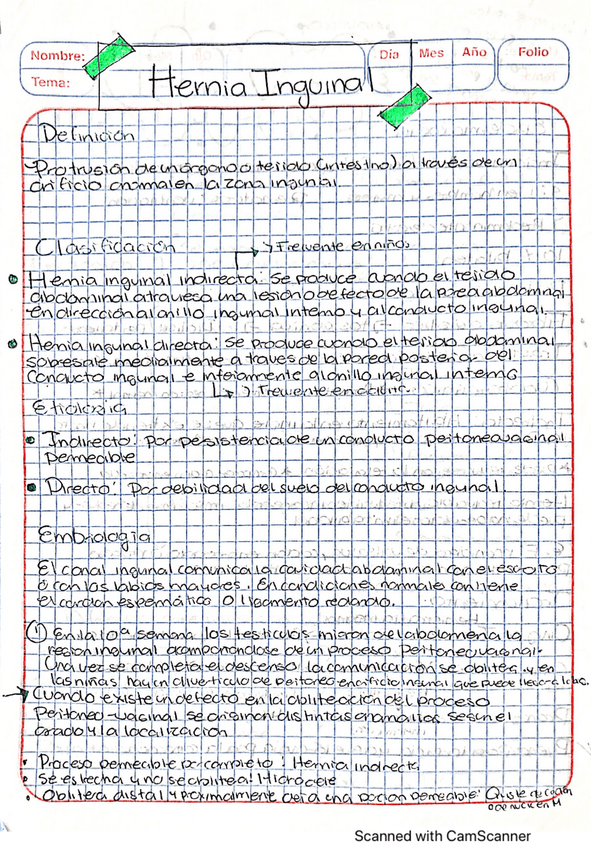 Nombre:
Dia Mes Año Folio
Tema:
Hernia Inguinal
Definición
Protrusión de un órgano o tejido (intestino) a través de un
orificio anomal en la zona inguinal.
Clasificación
> Frecuente en niños
Hernia inguinal indirecta: Se produce cuando el tejido
abdominal atraviesa una lesión o defecto de la pared abdominal
en dirección al anillo inguinal interno y al conducto inguinal.
Hernia inguinal directa: Se produce cuando el tejido abdominal
sobresale medialmente a traves de la pared posterior del
conducto inguinal e inferiormente al anillo inguinal interno
> Frecuente en
Etiología
Indirecto: por persistencia de un conducto peritoneovaginal
permeable
Directo: Por debilidad del suelo del conducto inguinal.
Embriología
El canal inguinal comunica la cavidad abdominal con el escroto
o con los labios mayores. En condiciones normales contiene
el cordón espermático o ligamento redondo.
① En la 10ª semana los testículos migran del abdomen a la
región inguinal acompañandose de un proceso Peritoneovaginal.
Una vez se completa el descenso la comunicación se oblitera y en
las niñas hay un divertículo de peritoneo en orificio inguinal que puede llevar a
Cuando existe un defecto en la obliteración del proceso
Peritoneo-vaginal se originan distintas anomalías según el
grado y la localización
Proceso permeable por completo: Hernia indirecta
Se estrecha y no se oblitera: Hidrocele
Oblitera distal y proximalmente deja una porción permeable: Quiste de cordón
o de nuck en M
Scanned with CamScanner